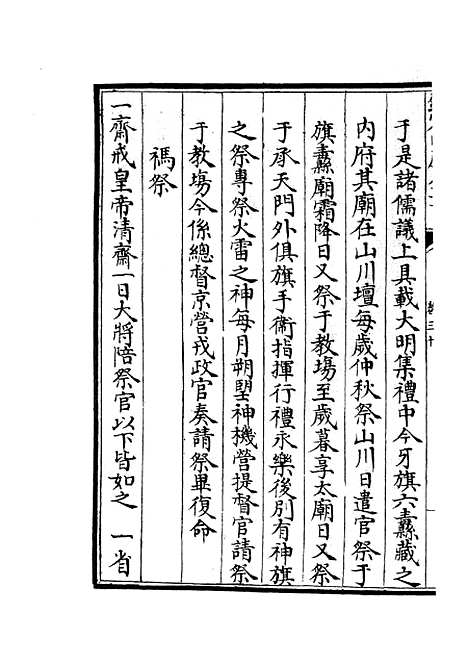 于是諸儒議上具載大明集禮中今牙旗六纛藏之
内府其廟在山川壇每歲仲秋祭山川日遣官祭于
旗纛廟霜降日又祭于教場至歲暮享太廟日又祭
于承天門外俱旗手衞指揮行禮永樂後別有神旗
之祭專祭火雷之神每月朔朢神機營提督官請祭
于教場今係總督京營戎政官奏請祭畢復命
禡祭
一齋戒皇帝清齋一日大將陪祭官以下皆如之　一省